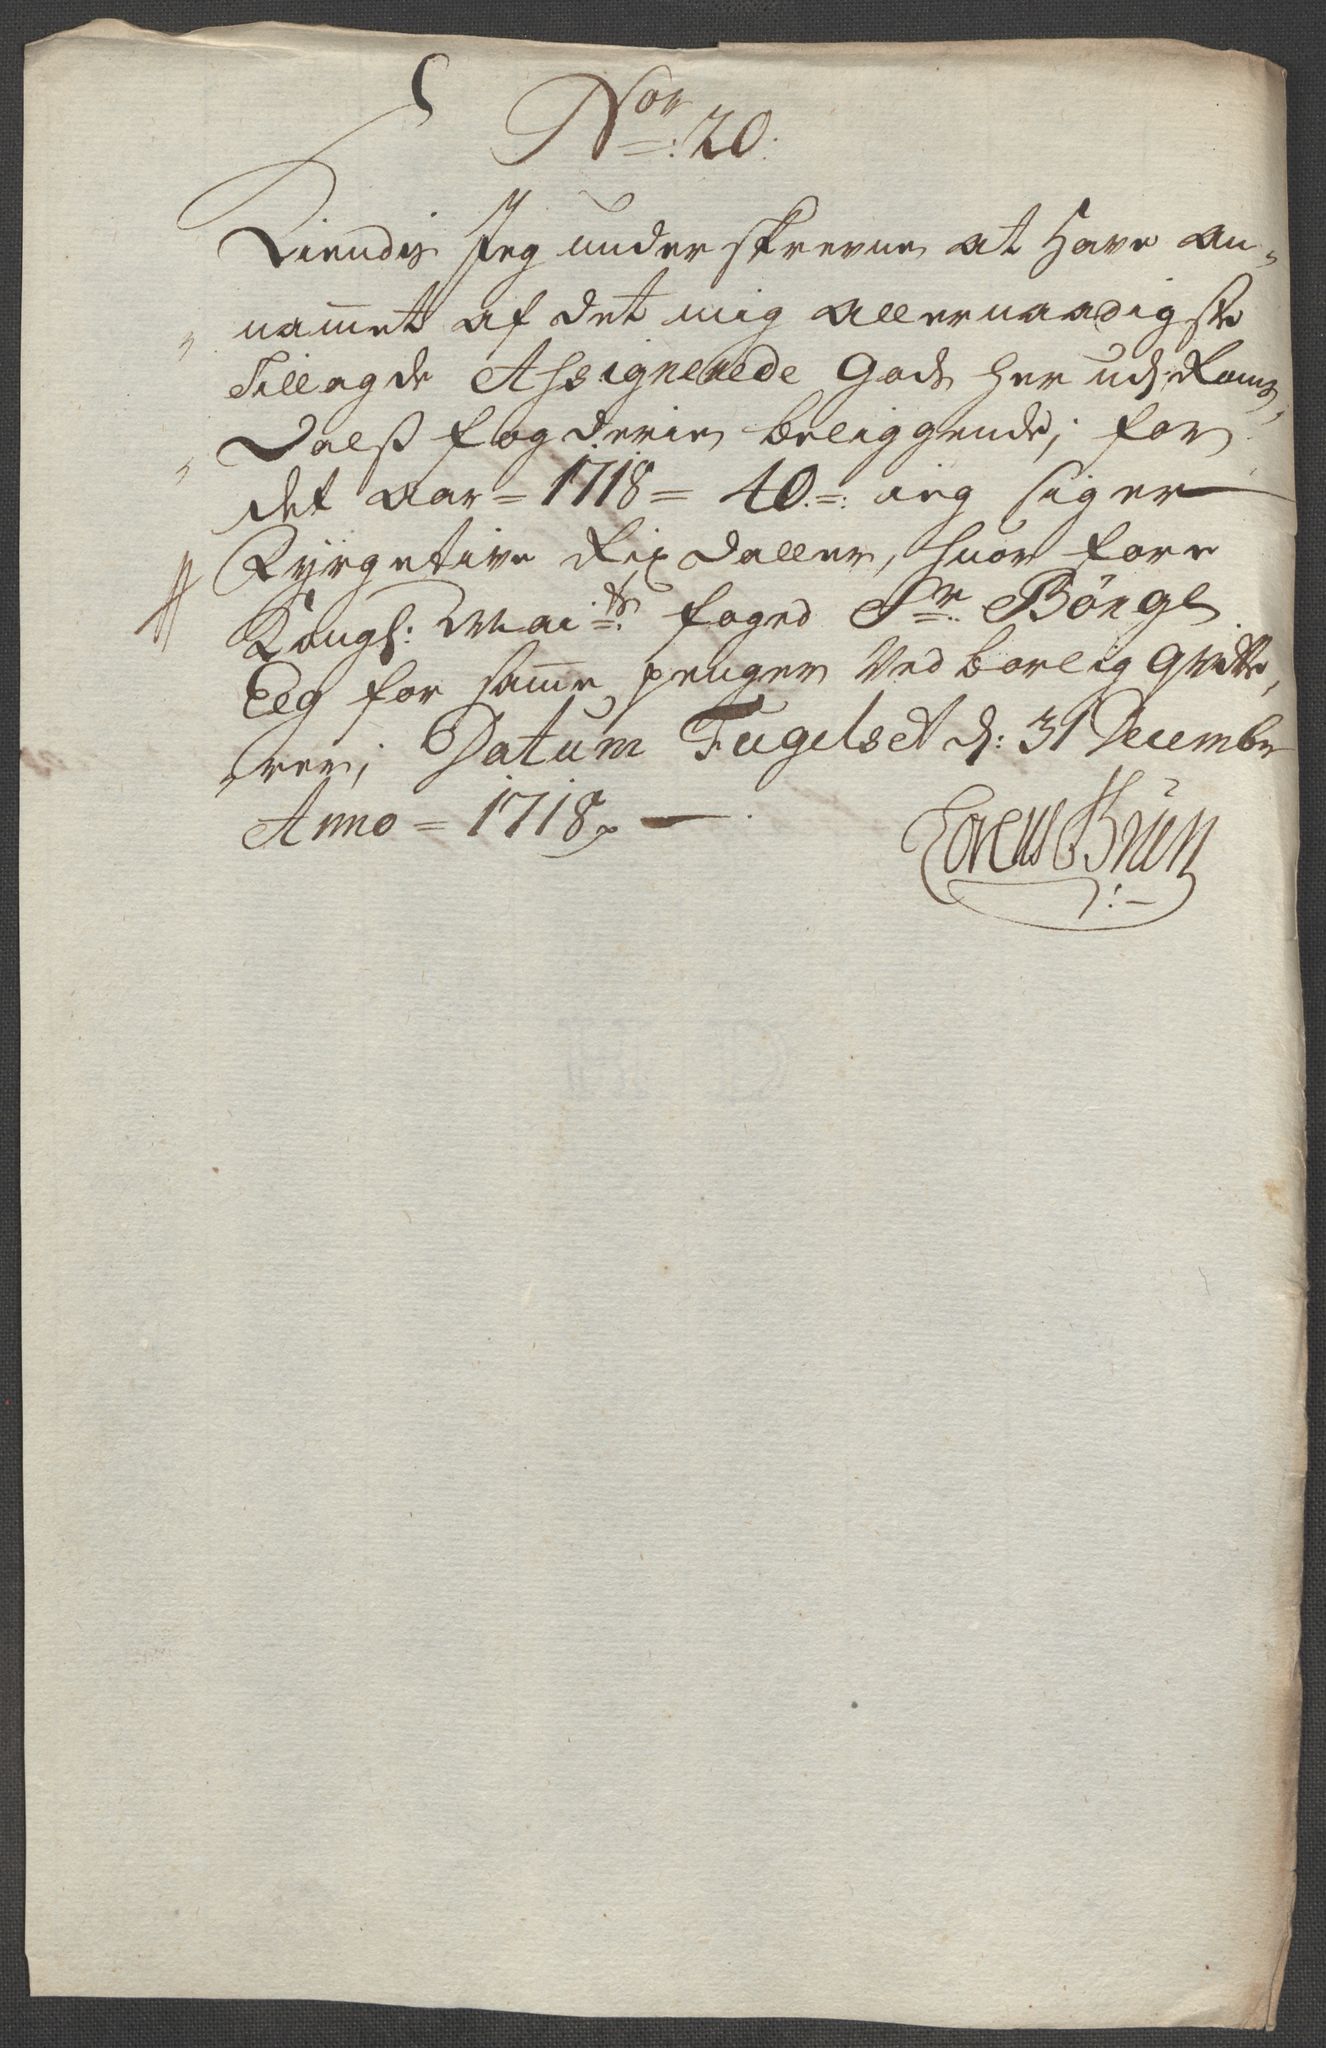 Nor: 20.
Kiendis Jeg underskrevne at Have an-
nam̄et af det mig allernaadigste
Tillagde Assignerede Gods her udj Roms-
Dalß fogderie beliggende; for
det aar = 1718 = 40.=: ieg siger
Fyrgetive Rixdaller, huor fore
Kongl: Maits: foged Sr. Börge
Eeg for sam̄e penger Vedborlig qvitte-
rer; Datum Fugelset d: 31 Decembr
Anno = 1718.
Lorens Brun